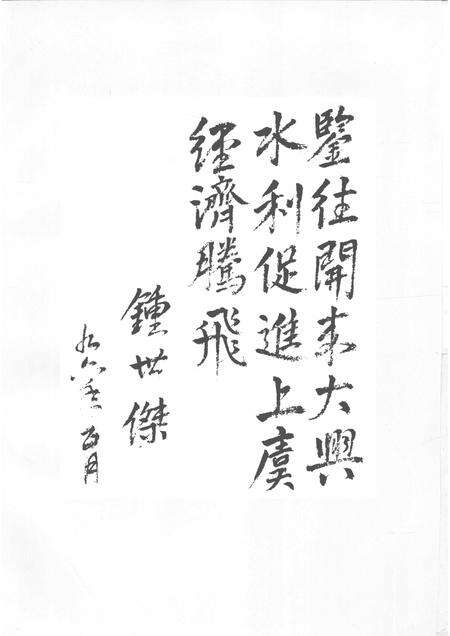 鑒往開来大興
水利促進上虞
經濟騰飛
鍾世傑
九六年 月